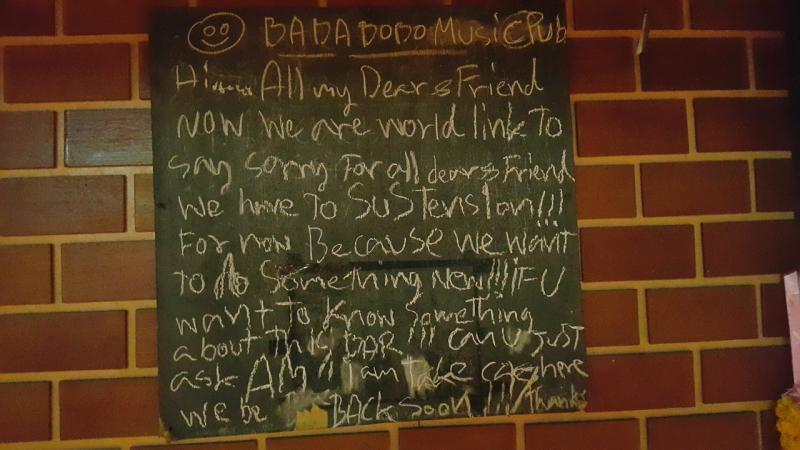 BABA BOBO Music Pub
Hi..... All my Dearss Friend
NOW We are world link to
say sorry For all dearss Friend
We have To SuStension!!!
For now Because we want
to do Something New!!! IF U
want To Know Something
about This BAR!!! Can U JUST
ask AM!! I am take care here
we be BACK Soon!!! Thanks